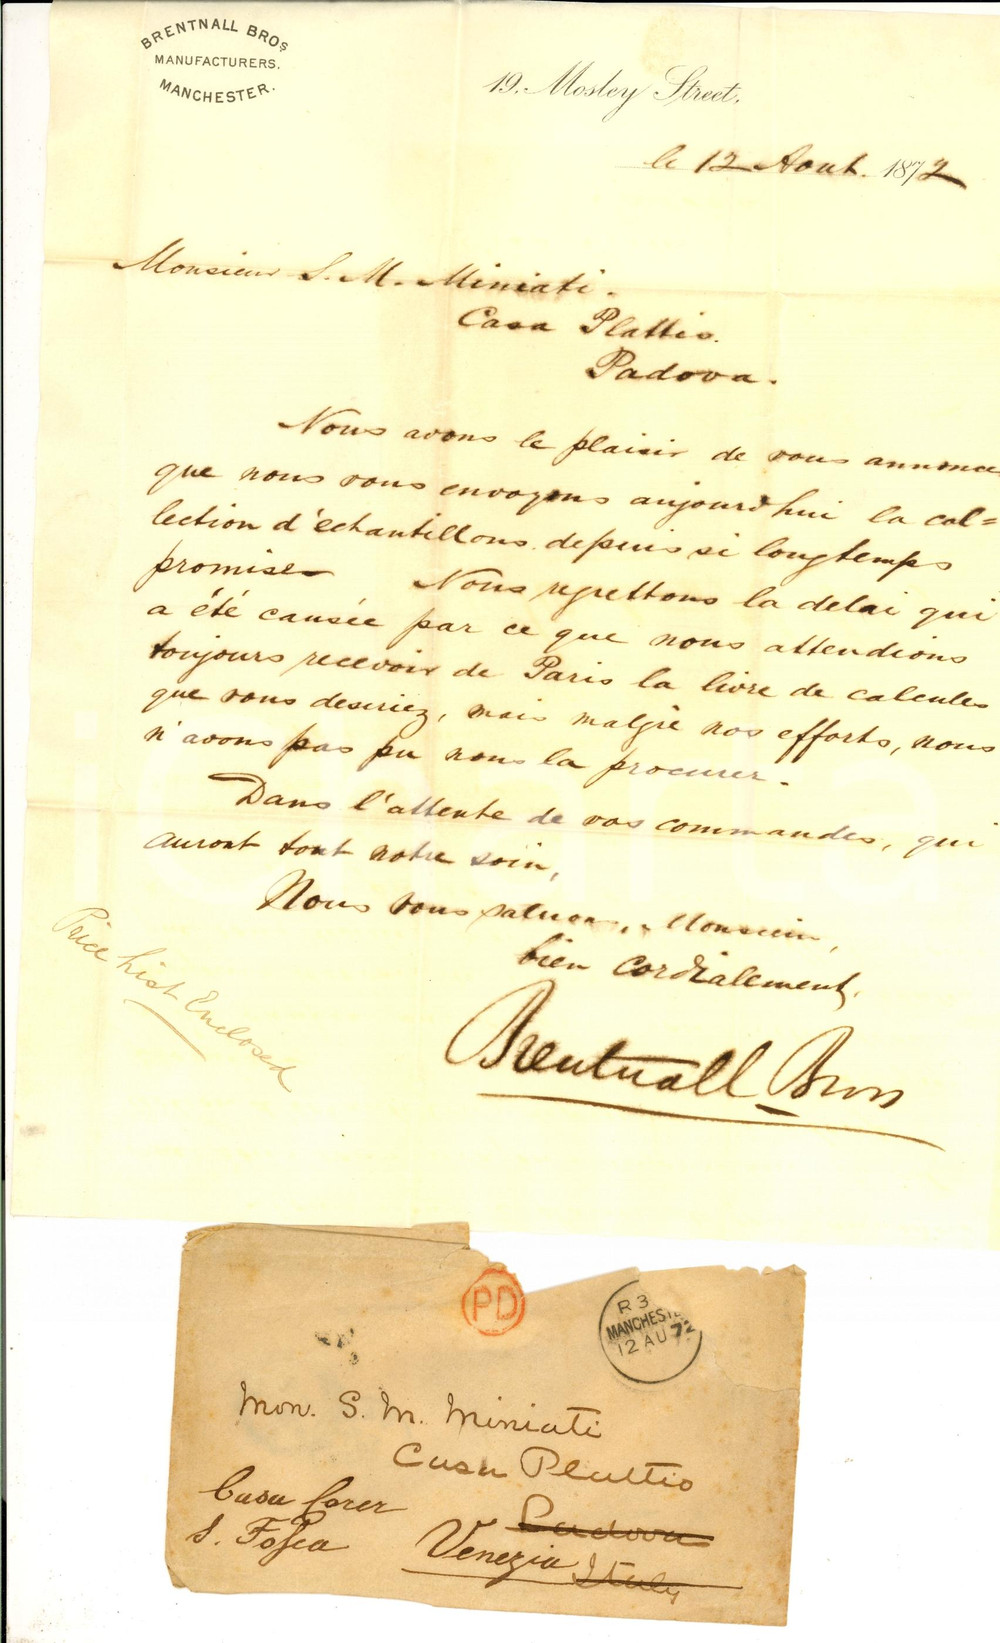 BRENTNALL BROS
MANUFACTURERS.
MANCHESTER.
19. Mosley Street.
le 12 Aout. 1872
Monsieur S. M. Miniati.
Casa Plattis.
Padova.
Nous avons le plaisir de vous annoncer
que nous vous envoyons aujourd'hui la col=
lection d'échantillons depuis si longtemps
promises Nous regrettons la delai qui
a été causée par ce que nous attendions
toujours recevoir de Paris la livre de calcules
que vous desiriez, mais malgré nos efforts, nous
n'avons pas pu nous la procurer.
Dans l'attente de vos commandes, qui
auront tout notre soin,
Nous vous saluons, Monsieur,
bien cordialement,
Brentnall Bros
Price List Enclosed
PD
R 3
MANCHESTE
12 AU 72
Mon. S. M. Miniati
Casa Plattis
Padova
Casa Corer
S. Fosca
Venezia Italy